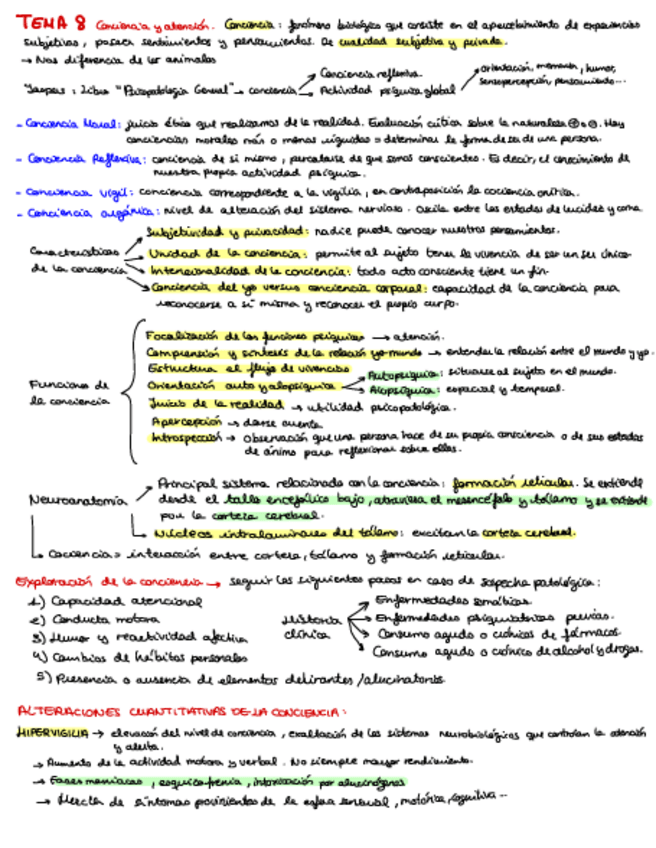 TEMA 8 Conciencia y atención. Conciencia: fenómeno biológico que consiste en el apercibimiento de experiencias
subjetivas, poseer sentimientos y pensamientos. De cualidad subjetiva y privada.
→ Nos diferencia de los animales
Jaspers: Libro "Psicopatología General" → conciencia → Conciencia reflexiva
→ Actividad psíquica global → orientación, memoria, humor,
sensopercepción, pensamiento...
- Conciencia Moral: juicio ético que realizamos de la realidad. Evaluación crítica sobre la naturaleza ⊕ o ⊖. Hay
conciencias morales más o menos rígidas = determinar la forma de ser de una persona.
- Conciencia Reflexiva: conciencia de sí mismo, percatarse de que somos conscientes. Es decir, el conocimiento de
nuestra propia actividad psíquica.
- Conciencia vigil: conciencia correspondiente a la vigilia, en contraposición la conciencia onírica.
- Conciencia orgánica: nivel de alteración del sistema nervioso. Oscila entre los estados de lucidez y coma.
Características
de la conciencia
Subjetividad y privacidad: nadie puede conocer nuestros pensamientos.
Unidad de la conciencia: permite al sujeto tener la vivencia de ser un ser único.
Intencionalidad de la conciencia: todo acto consciente tiene un fin.
Conciencia del yo versus conciencia corporal: capacidad de la conciencia para
reconocerse a sí misma y reconocer el propio cuerpo.
Funciones de
la conciencia
Focalización de las funciones psíquicas → atención.
Comprensión y síntesis de la relación yo-mundo → entender la relación entre el mundo y yo.
Estructura el flujo de vivencias
Orientación auto y alopsíquica → Autopsíquica: situarse al sujeto en el mundo.
→ Alopsíquica: espacial y temporal.
Juicio de la realidad → utilidad psicopatológica.
Apercepción → darse cuenta
Introspección → Observación que una persona hace de su propia consciencia o de sus estados
de ánimo para reflexionar sobre ellos.
Neuroanatomía
Principal sistema relacionado con la conciencia: formación reticular. Se extiende
desde el tallo encefálico bajo, atraviesa el mesencéfalo y tálamo y se extiende
por la corteza cerebral.
Núcleos intralaminares del tálamo: excitan la corteza cerebral.
Conciencia = interacción entre corteza, tálamo y formación reticular.
Exploración de la conciencia → seguir los siguientes pasos en caso de sospecha patológica:
1) Capacidad atencional
2) Conducta motora
3) Humor y reactividad afectiva
4) Cambios de hábitos personales
5) Presencia o ausencia de elementos delirantes/alucinatorios
Historia
clínica
Enfermedades somáticas.
Enfermedades psiquiátricas previas.
Consumo agudo o crónicos de fármacos.
Consumo agudo o crónico de alcohol y drogas.
ALTERACIONES CUANTITATIVAS DE LA CONCIENCIA:
HIPERVIGILIA → elevación del nivel de conciencia, exaltación de los sistemas neurobiológicos que controlan la atención
y alerta.
→ Aumento de la actividad motora y verbal. No siempre mayor rendimiento.
→ Fases maníacas, esquizofrenia, intoxicación por alucinógenos
→ Mezcla de síntomas provinientes de la esfera sensual, motórica, cognitiva...